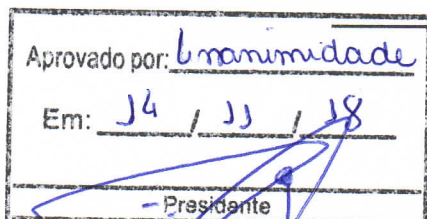 Aprovado por: Unanimidade
Em: 14 / 11 / 18
- Presidente